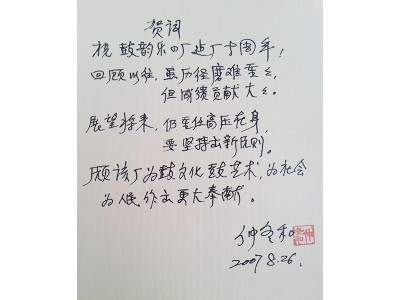 贺词
祝鼓韵乐口厂造厂十周年！
回顾以往，虽历经磨难至多，
但成绩贡献大之。
展望将来，仍重任高压在身，
要坚持出新原则。
愿该厂为鼓文化鼓艺术，为社会
为人民作出更大奉献。
仲冬和
2007.8.26.